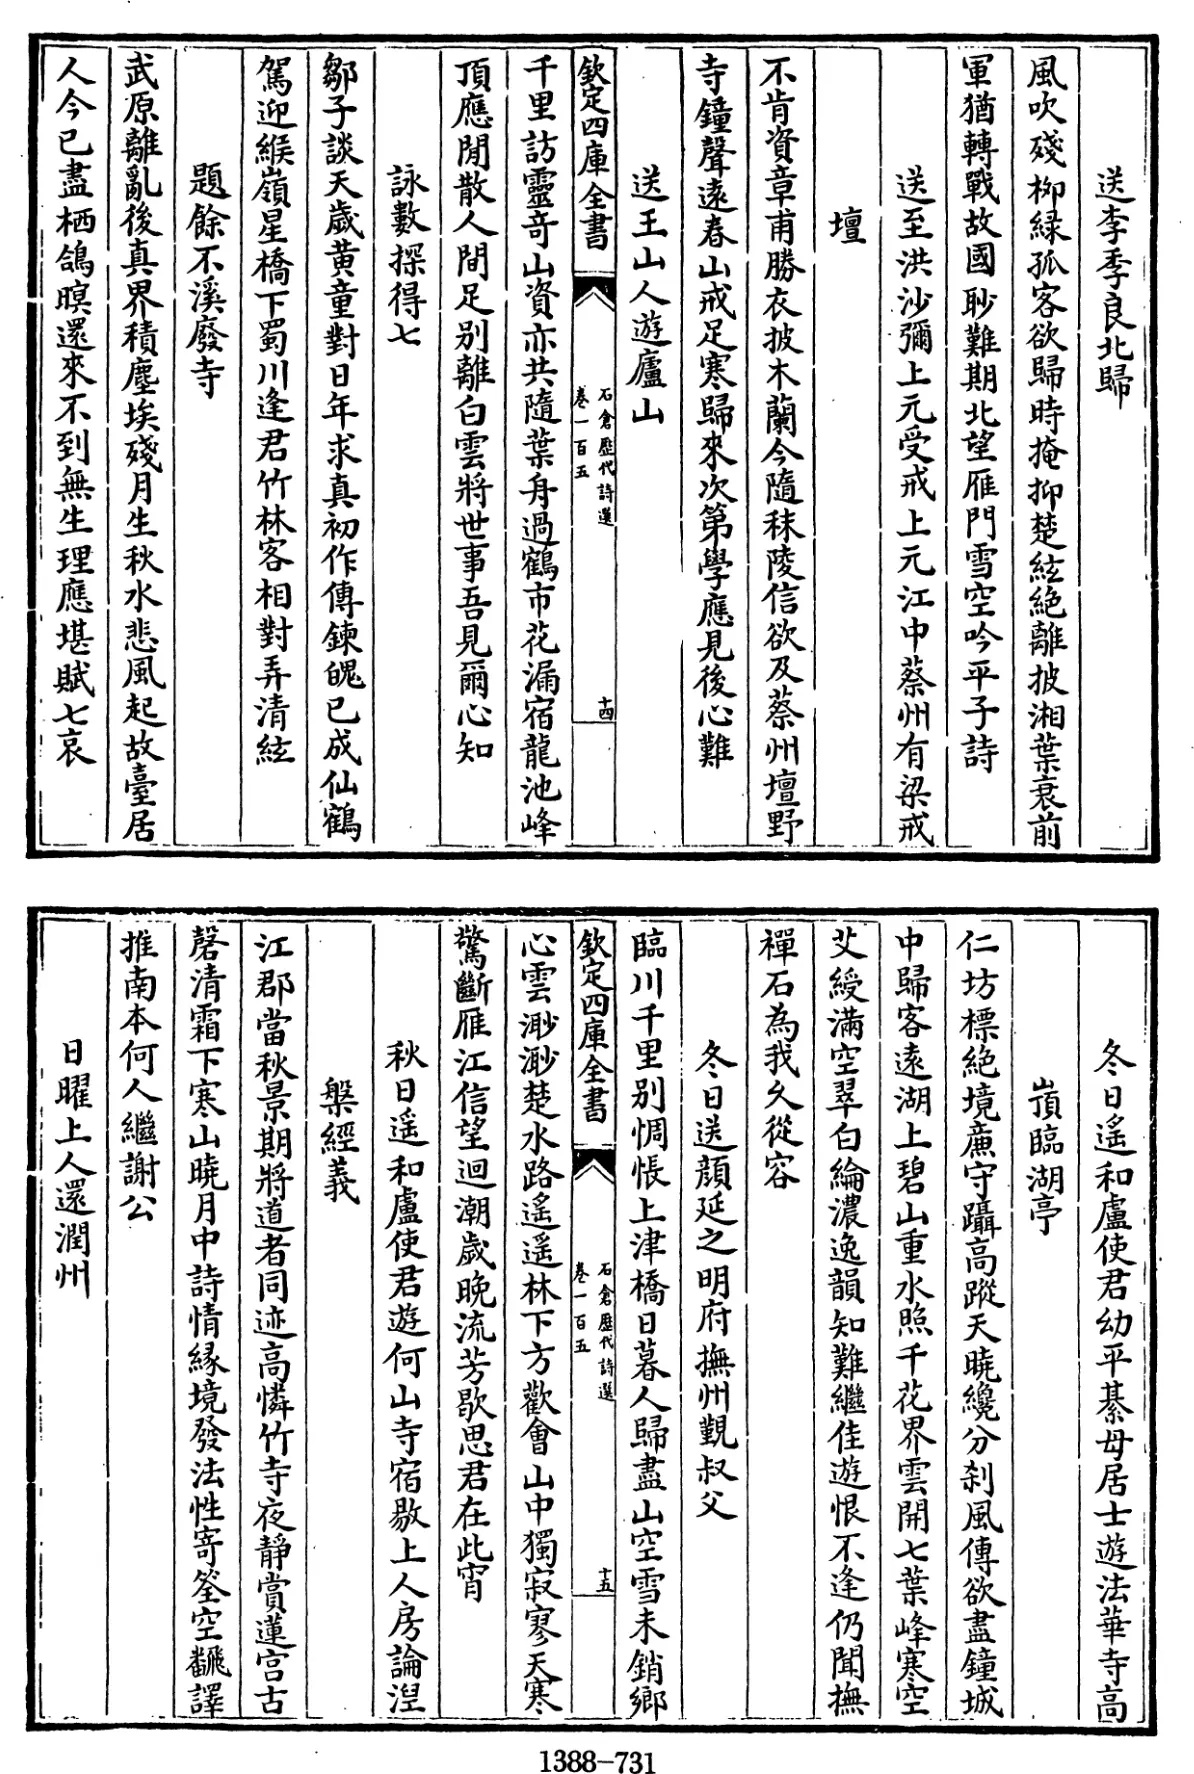 送李季良北歸
風吹殘柳緑孤客欲歸時掩抑楚絃絶離披湘葉衰前
軍猶轉戰故國耿難期北望雁門雪空吟平子詩
送至洪沙彌上元受戒上元江中蔡州有梁戒
壇
不肯資章甫勝衣披木蘭今隨秣陵信欲及蔡州壇野
寺鐘聲遠春山戒足寒歸來次第學應見後心難
送王山人遊廬山
欽定四庫全書
石倉歷代詩選
卷一百五
十四
千里訪靈奇山資亦共隨葉舟過鶴市花漏宿龍池峰
頂應閒散人間足别離白雲將世事吾見爾心知
詠數探得七
鄒子談天歲黄童對日年求真初作傳鍊魄已成仙鶴
駕迎緱嶺星橋下蜀川逢君竹林客相對弄清絃
題餘不溪廢寺
武原離亂後真界積塵埃殘月生秋水悲風起故臺居
人今已盡栖鴿暝還來不到無生理應堪賦七哀
冬日遥和盧使君幼平綦毋居士遊法華寺高
頂臨湖亭
仁坊標絶境亷守躡高蹤天曉纔分刹風傳欲盡鐘城
中歸客遠湖上碧山重水照千花界雲開七葉峰寒空
艾綬滿空翠白綸濃逸韻知難繼佳遊恨不逢仍聞撫
禪石為我久從容
冬日送顔延之明府撫州覲叔父
臨川千里别惆悵上津橋日暮人歸盡山空雪未銷鄉
欽定四庫全書
石倉歷代詩選
卷一百五
十五
心雲渺渺楚水路遥遥林下方歡會山中獨寂寥天寒
驚斷雁江信望迴潮歲晚流芳歇思君在此宵
秋日遥和盧使君遊何山寺宿敭上人房論湼
槃經義
江郡當秋景期將道者同迹高憐竹寺夜靜賞蓮宫古
磬清霜下寒山曉月中詩情緣境發法性寄筌空飜譯
推南本何人繼謝公
日曜上人還潤州
1388-731